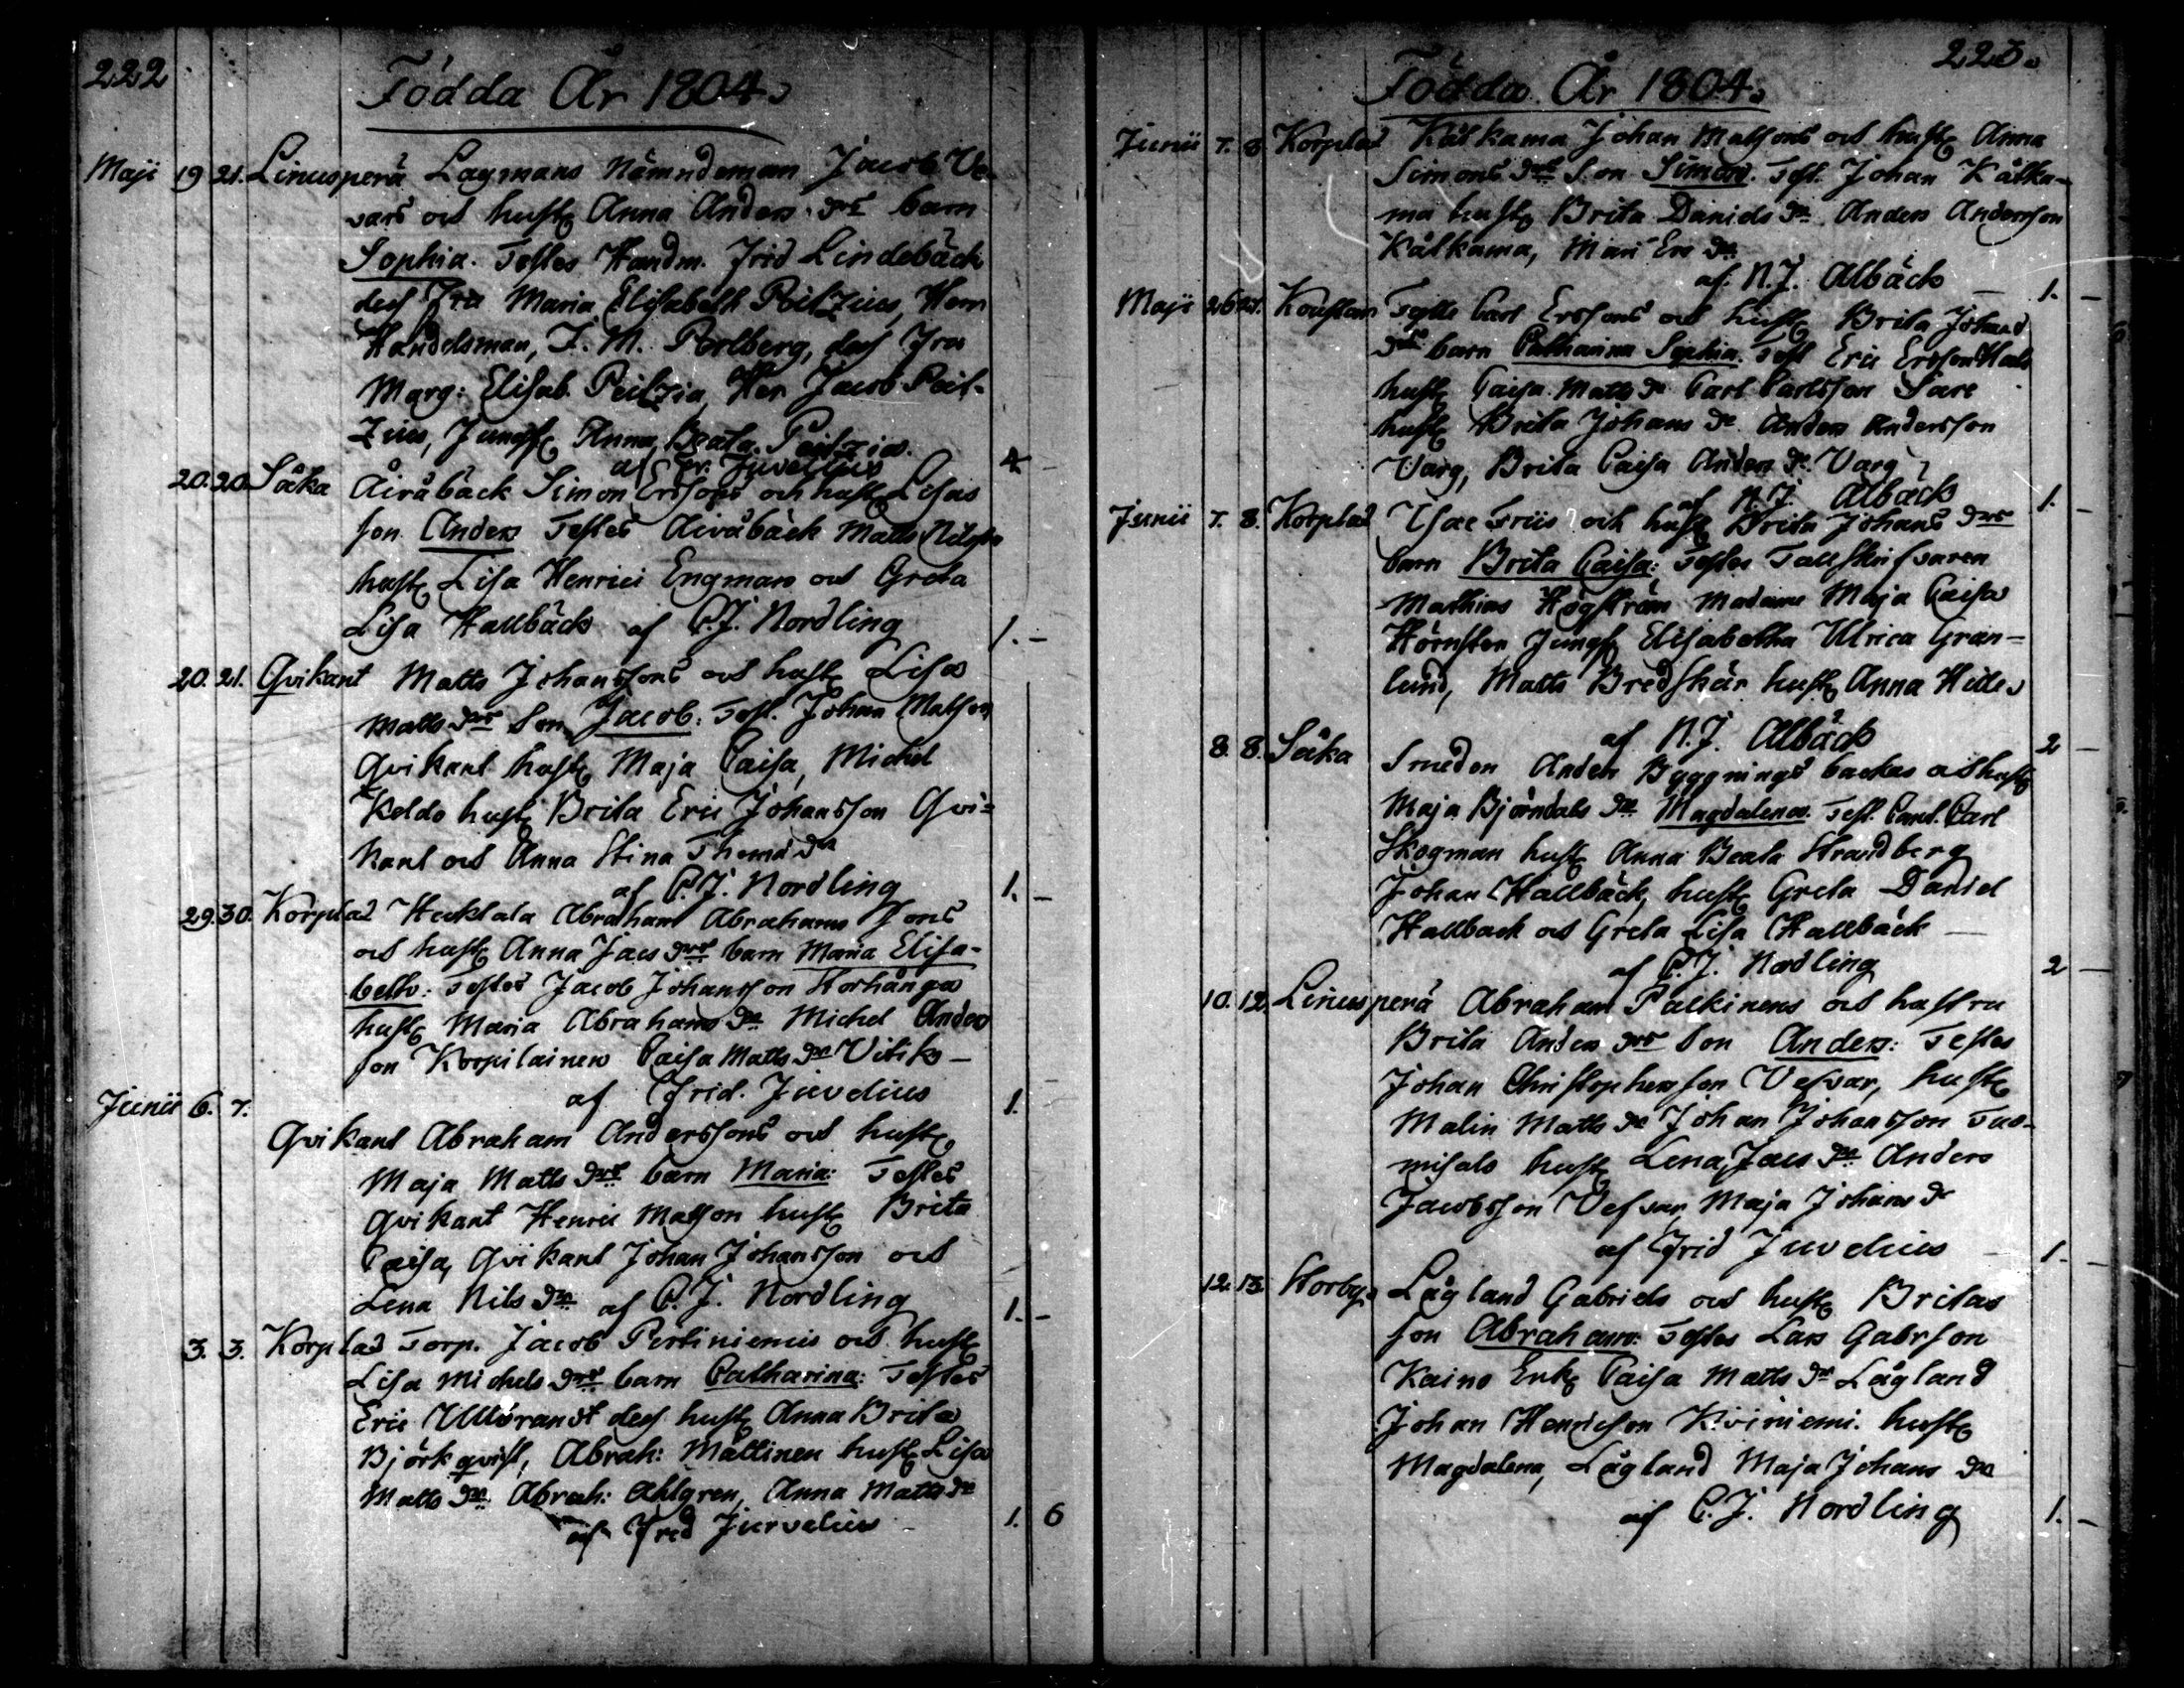 222
Födda År 1804.
Maji 19 21. Linusperä Lagmans Nämndeman Jacob Ve
vars och hustr Anna Anders drs barn
Sophia. Testes Handm. Frid Lindebäck
dess Fru Maria Elisabeth Peitzius, Herr
Handelsman, J. M. Rolberg, dess Fru
Marg: Elisab. Peitzia, Her Jacob Peit-
zius, Jungf Anna Beata Peitzia.
af Fr. Juvelius 4 -
20. 20. Såka Åiråback Simon Erssons och hustr Lisas
son Anders Testes Airåbäck Matts Nilsson
hustr Lisa Henrici Engman och Greta
Lisa Hallbäck af C.J. Nordling 1. -
20. 21. Qvikant Matts Johanssons och hustr Lisa
Matts drs Son Jacob: Test. Johan Matsson
Qvikant hustr Maja Caisa, Michel
Keldo hustr Brita Eric Johansson Qvi-
kant och Anna Stina Thomæ dr
af C.J. Nordling 1. -
29. 30. Korplax Huktala Abraham Abrahams sons
och hustr Anna Jacs drs barn Maria Elisa-
beth: Testes Jacob Johansson Storhånga
hustr Maria Abrahams dr Michel Anders
son Korpilainen Caisa Matts dr Vitik -
af Frid. Juvelius 1.
Junii 6. 7.
Qvikant Abraham Anderssons och hustr
Maja Matts drs barn Maria: Testes
Qvikant Henric Matsson hustr Brita
Caisa, Qvikant Johan Johansson och
Lena Nils dr af C.J. Nordling 1. -
3. 3. Korplax Torp. Jacob Pertiniemis och hustr
Lisa Michels drs barn Catharina: Testes
Eric Ullbrandt dess hustr Anna Brita
Björkqvist, Abrah: Mattinen hustr Lisa
Matts dr Abrah: Ahlgren, Anna Matts dr
af Frid Juvelius 1. 6
223.
Födda År 1804.
Junii 7. 8. Korplax Kålkama Johan Matssons och hustr Anna
Simons drs Son Simon. Test. Johan Kålka-
ma hustr Brita Daniels dr Anders Andersson
Kålkama, Mari Ers dr
af N.J. Albäck - 1. -
Maji 26 27. Carl Erssons och hustr Brita Johans
drs barn Catharina Sophia. Test Eric Ersson Hals
hustr Caisa Matts dr Carl Carlsson Sare
hustr Brita Johans dr Anders Andersson
Varg, Brita Caisa Anders dr Varg
af N.J. Albäck 1. -
Junii 7. 8. Korplax Isac Friis och hustr Brita Johans drs
barn Brita Caisa: Testes
Mathias Högström Madame Maja Caisa
Hörnsten Jungf Elisabetha Ulrica Gran-
lund, Matts Bredskär hustr Anna Helle.
af N.J. Albäck 2 -
8. 8. Såka Smeden Anders Byggningsbackas och hustr
Maja Björndals dr Magdalena. Test. Cant. Carl
Skogman hustr Anna Beata Strandberg
Johan Hallbäck, hustr Greta Daniel
Hallback och Greta Lisa Hallbäck -
af C.J. Nordling 2 -
10. 12. Linusperä Abraham Palkinens och hustru
Brita Anders drs Son Anders: Testes
Johan Christophersson Vesvar, hustr
Malin Matts dr Johan Johansson Tuo-
misalo hustr Lena Jacs dr Anders
Jacobsson Vesvar, Maja Johans dr
af Frid Juvelius - 1. -
12. 13. Storby Lågland Gabriels och hustr Britas
son Abraham: Testes Lars Gabrson
Kaino Enk Caisa Matts dr Lågland
Johan Henricson Kiviniemi hustr
Magdalena, Lågland Maja Johans dr
af C.J. Nordling 1. -